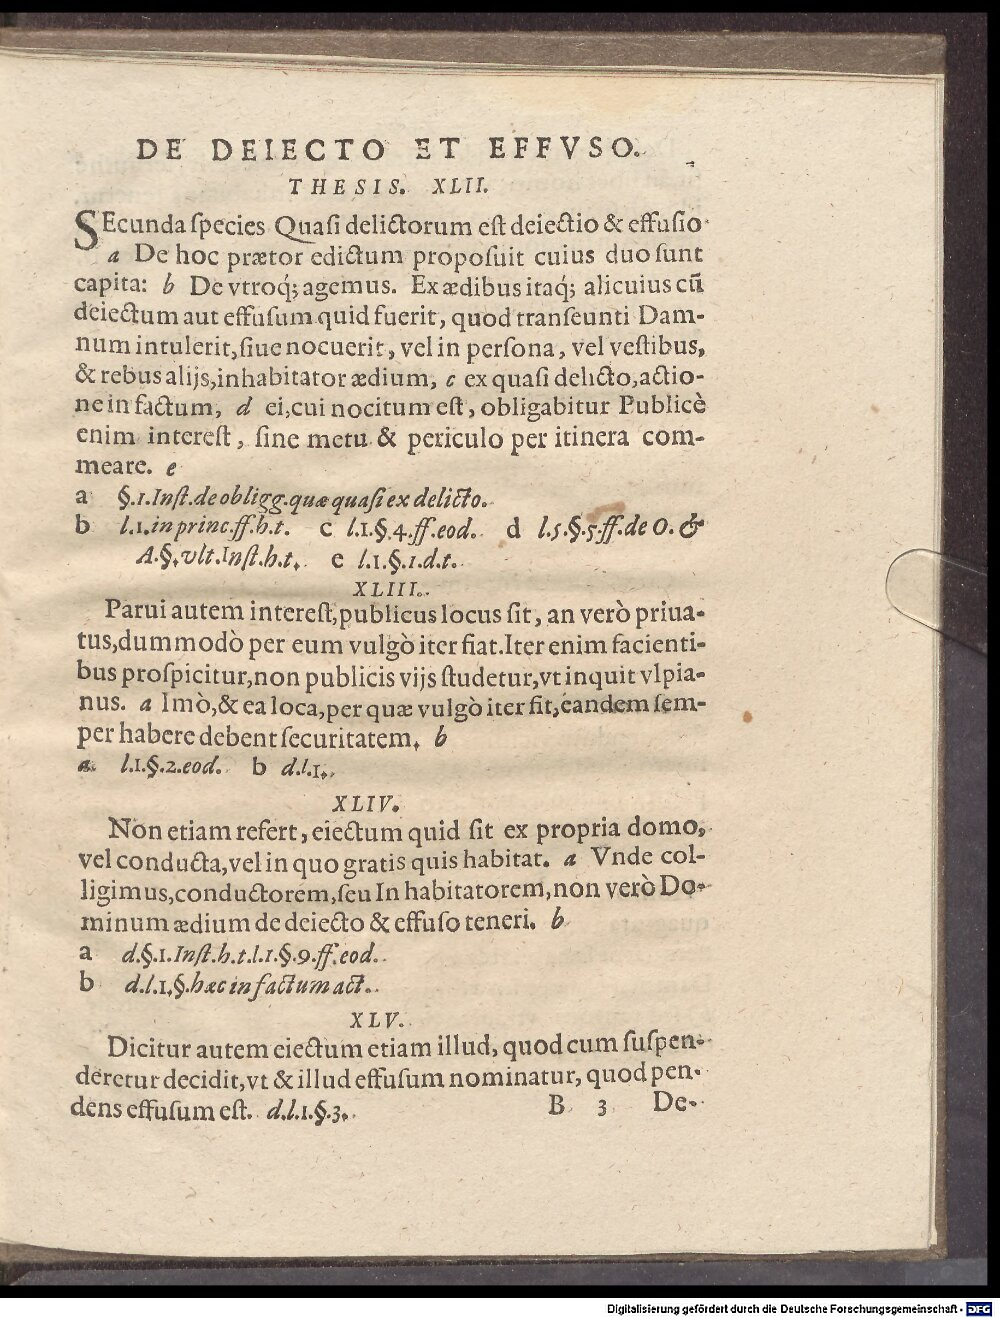 DE DEIECTO ET EFFVSO.
THESIS. XLII.
SEcunda ſpecies Quaſi delictorum eſt deiectio & effuſio
a De hoc prætor edictum propoſuit cuius duo ſunt
capita: b De vtroq́; agemus. Ex ædibus itaq́; alicuius cū
deiectum aut effuſum quid fuerit, quod tranſeunti Dam-
num intulerit, ſiue nocuerit, vel in perſona, vel veſtibus,
& rebus alijs, inhabitator ædium, c ex quaſi delicto, actio-
ne in factum, d ei, cui nocitum eſt, obligabitur Publicè
enim intereſt, ſine metu & periculo per itinera com-
meare. e
a §.1. Inſt. de obligg. quæ quaſi ex delicto.
b l.1. in princ. ff. h. t. c l.1. §. 4. ff. eod. d l.5. §. 5. ff. de O. &
A. §. vlt. Inſt. h. t. e l.1. §. 1. d. t.
XLIII.
Parui autem intereſt, publicus locus ſit, an verò priua-
tus, dummodò per eum vulgò iter fiat. Iter enim facienti-
bus proſpicitur, non publicis vijs ſtudetur, vt inquit vlpia-
nus. a Imò, & ea loca, per quæ vulgò iter fit, eandem ſem-
per habere debent ſecuritatem. b
a l.1. §. 2. eod. b d. l. 1.
XLIV.
Non etiam refert, eiectum quid ſit ex propria domo,
vel conducta, vel in quo gratis quis habitat. a Vnde col-
ligimus, conductorem, ſeu In habitatorem, non verò Do-
minum ædium de deiecto & effuſo teneri. b
a d. §. 1. Inſt. h. t. l. 1. §. 9. ff. eod.
b d. l. 1. §. hæc in factum act.
XLV.
Dicitur autem eiectum etiam illud, quod cum ſuſpen-
deretur decidit, vt & illud effuſum nominatur, quod pen-
dens effuſum eſt. d. l. 1. §. 3.
B 3 De-
Digitalisierung gefördert durch die Deutsche Forschungsgemeinschaft - DFG